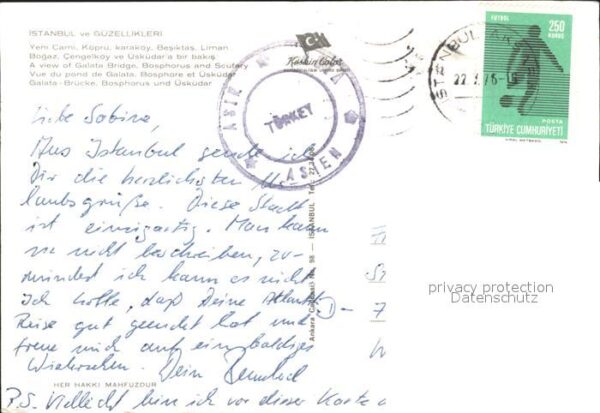 İSTANBUL ve GÜZELLİKLERİ
Yeni Cami, Köprü, karaköy, Beşiktaş, Liman
Boğaz, Çengelköy ve Üsküdar'a bir bakış
A view of Galata Bridge, Bosphorus and Scutary
Vue du pond de Galata, Bosphore et Üsküdar
Galata-Brücke, Bosphorus und Üsküdar
Keskin Color
ASIE
TURKEY
ASIEN
İSTANBUL
FUTBOL
250
KURUŞ
POSTA
TÜRKİYE CUMHURİYETİ
Liebe Sabine,
Aus Istanbul sende ich
Dir die herzlichsten Ur-
laubsgrüße. Diese Stadt
ist einzigartig. Man kann
sie nicht beschreiben, zu-
mindest ich kann es nicht
Ich hoffe, daß Deine Atlantik-
Reise gut geendet hat und
freue mich auf ein baldiges
Wiedersehen. Dein
P.S. Vielleicht bin ich vor dieser Karte
HER HAKKI MAHFUZDUR
Ankara Caddesi No. 98 — İSTANBUL
privacy protection
Datenschutz